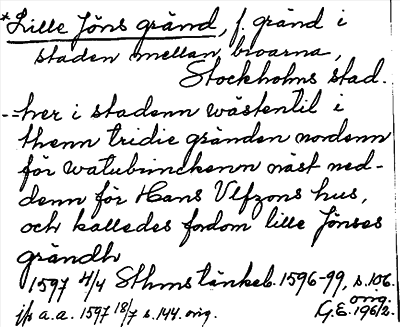 *Lille Jöns gränd, f. gränd i
staden mellan broarna,
Stockholms stad.
-=her i stadenn wästentil i
thenn tridie gränden nordenn
för watubrinckenn näst ned-
denn för Hans Ulfzons hus,
och kalledes fordom lille Jönses
grändh
1597 4/4 Sthms tänkeb. 1596-99, s. 106.
orig.
jfr a.a. 1597 18/7 s. 144. orig. G.E. 1962.